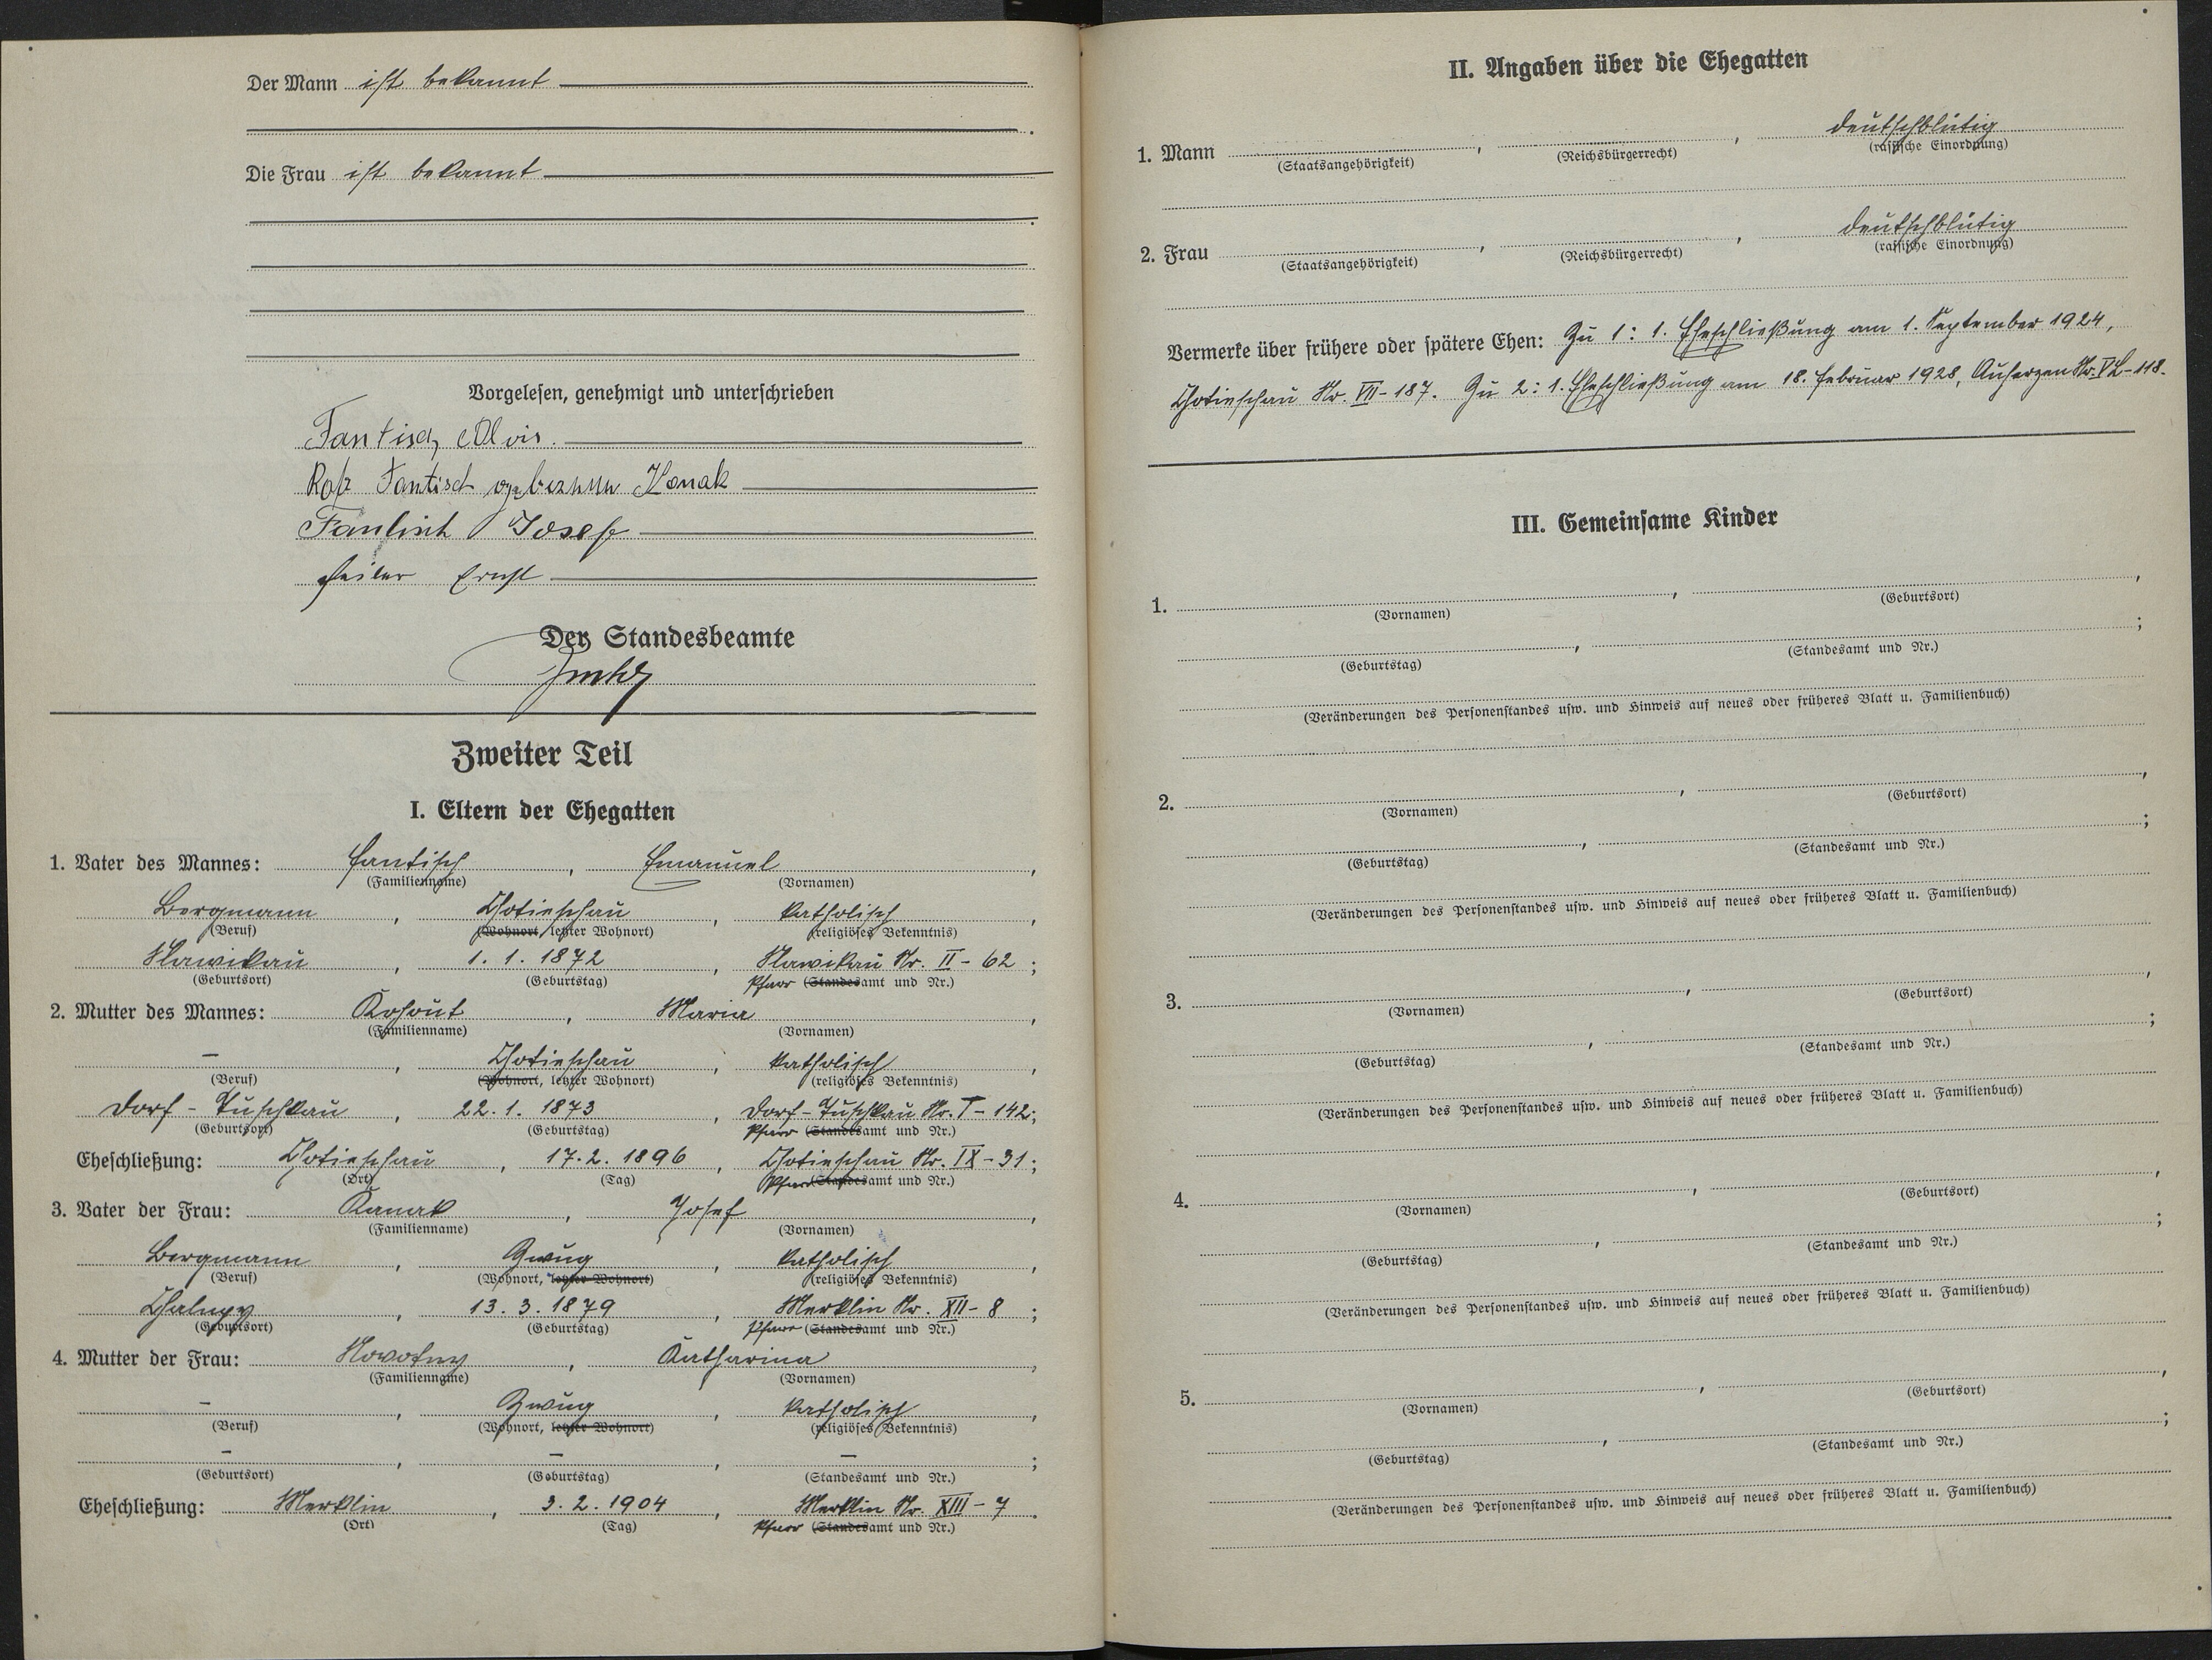 Der Mann ist bekannt
Die Frau ist bekannt
Vorgelesen, genehmigt und unterschrieben
Fantisch Alois.
Fantisch Kanak
Fantisch Josef
Ernst
Der Standesbeamte
Zweiter Teil
I. Eltern der Ehegatten
1. Vater des Mannes: Fantisch, Emanuel,
(Familienname) (Vornamen)
Bergmann, Chotieschau, katholisch,
(Beruf) (Wohnort, letzter Wohnort) (religiöses Bekenntnis)
Slawikau, 1. 1. 1872, Slawikau Nr. II - 62;
(Geburtsort) (Geburtstag) Pfarr (Standesamt und Nr.)
2. Mutter des Mannes: Kohout, Maria,
(Familienname) (Vornamen)
-, Chotieschau, katholisch,
(Beruf) (Wohnort, letzter Wohnort) (religiöses Bekenntnis)
Dorf - Tuschkau, 22. 1. 1873, Dorf - Tuschkau Nr. T - 142;
(Geburtsort) (Geburtstag) Pfarr (Standesamt und Nr.)
Eheschließung: Chotieschau, 17. 2. 1896, Chotieschau Nr. IX - 31;
(Ort) (Tag) Pfarr (Standesamt und Nr.)
3. Vater der Frau: Kanak, Josef,
(Familienname) (Vornamen)
Bergmann, Zwug, katholisch,
(Beruf) (Wohnort, letzter Wohnort) (religiöses Bekenntnis)
Chalupy, 13. 3. 1879, Merklin Nr. XII - 8;
(Geburtsort) (Geburtstag) Pfarr (Standesamt und Nr.)
4. Mutter der Frau: Nowotny, Katharina,
(Familienname) (Vornamen)
-, Zwug, katholisch,
(Beruf) (Wohnort, letzter Wohnort) (religiöses Bekenntnis)
-, -, -;
(Geburtsort) (Geburtstag) (Standesamt und Nr.)
Eheschließung: Merklin, 3. 2. 1904, Merklin Nr. XIII - 7.
(Ort) (Tag) Pfarr (Standesamt und Nr.)
II. Angaben über die Ehegatten
1. Mann, , deutschblütig
(Staatsangehörigkeit) (Reichsbürgerrecht) (rassische Einordnung)
2. Frau, , deutschblütig
(Staatsangehörigkeit) (Reichsbürgerrecht) (rassische Einordnung)
Vermerke über frühere oder spätere Ehen: Zu 1: 1. Eheschließung am 1. September 1924,
Chotieschau Nr. VII - 187. Zu 2: 1. Eheschließung am 18. Februar 1928, Auherzen Nr. - 118.
III. Gemeinsame Kinder
1. , ,
(Vornamen) (Geburtsort)
, ;
(Geburtstag) (Standesamt und Nr.)
(Veränderungen des Personenstandes usw. und Hinweis auf neues oder früheres Blatt u. Familienbuch)
2. , ,
(Vornamen) (Geburtsort)
, ;
(Geburtstag) (Standesamt und Nr.)
(Veränderungen des Personenstandes usw. und Hinweis auf neues oder früheres Blatt u. Familienbuch)
3. , ,
(Vornamen) (Geburtsort)
, ;
(Geburtstag) (Standesamt und Nr.)
(Veränderungen des Personenstandes usw. und Hinweis auf neues oder früheres Blatt u. Familienbuch)
4. , ,
(Vornamen) (Geburtsort)
, ;
(Geburtstag) (Standesamt und Nr.)
(Veränderungen des Personenstandes usw. und Hinweis auf neues oder früheres Blatt u. Familienbuch)
5. , ,
(Vornamen) (Geburtsort)
, ;
(Geburtstag) (Standesamt und Nr.)
(Veränderungen des Personenstandes usw. und Hinweis auf neues oder früheres Blatt u. Familienbuch)